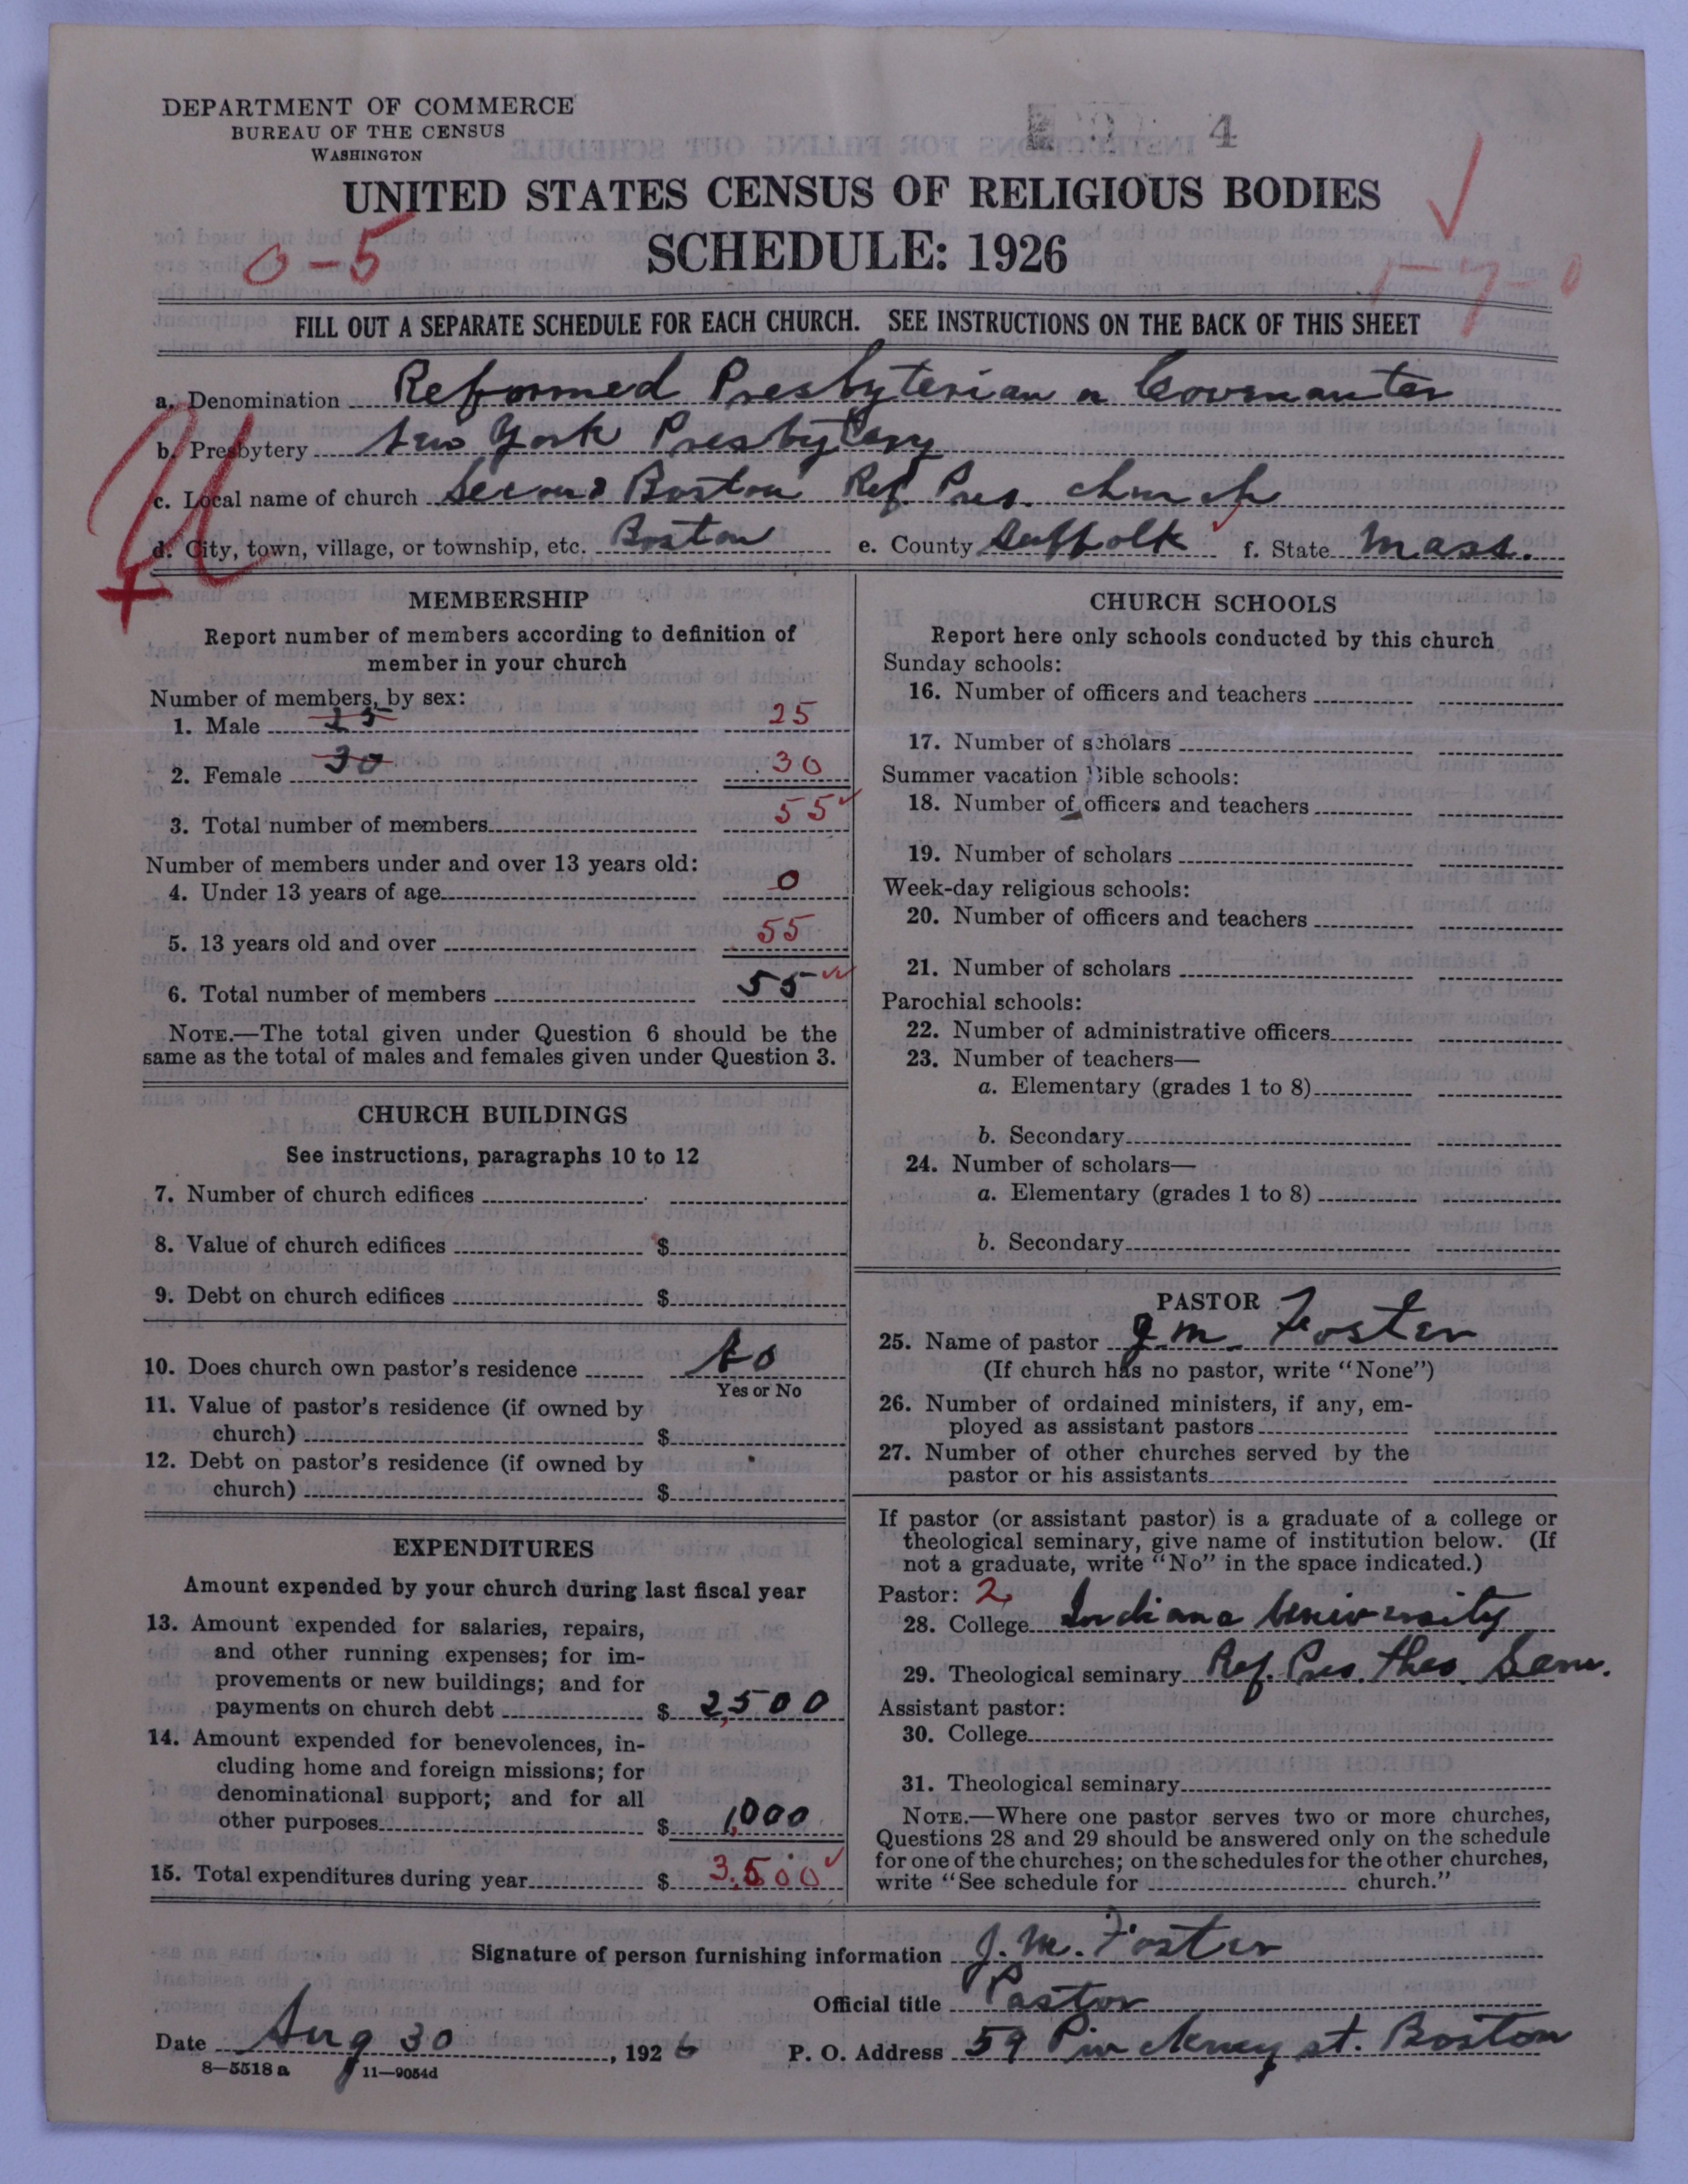 DEPARTMENT OF COMMERCE
BUREAU OF THE CENSUS
WASHINGTON
4
UNITED STATES CENSUS OF RELIGIOUS BODIES
SCHEDULE: 1926
0-5
FILL OUT A SEPARATE SCHEDULE FOR EACH CHURCH. SEE INSTRUCTIONS ON THE BACK OF THIS SHEET
a. Denomination Reformed Presbyterian or Covenanter
b. Presbytery New York Presbytery
c. Local name of church Second Boston Ref Pres. church
d. City, town, village, or township, etc. Boston e. County Suffolk f. State Mass.
MEMBERSHIP
Report number of members according to definition of
member in your church
Number of members, by sex:
1. Male 25 25
2. Female 30 30
3. Total number of members 55
Number of members under and over 13 years old:
4. Under 13 years of age 0
5. 13 years old and over 55
6. Total number of members 55
NOTE.—The total given under Question 6 should be the
same as the total of males and females given under Question 3.
CHURCH BUILDINGS
See instructions, paragraphs 10 to 12
7. Number of church edifices
8. Value of church edifices $
9. Debt on church edifices $
10. Does church own pastor's residence No
Yes or No
11. Value of pastor's residence (if owned by
church) $
12. Debt on pastor's residence (if owned by
church) $
EXPENDITURES
Amount expended by your church during last fiscal year
13. Amount expended for salaries, repairs,
and other running expenses; for im-
provements or new buildings; and for
payments on church debt $ 2,500
14. Amount expended for benevolences, in-
cluding home and foreign missions; for
denominational support; and for all
other purposes $ 1,000
15. Total expenditures during year $ 3,500
CHURCH SCHOOLS
Report here only schools conducted by this church
Sunday schools:
16. Number of officers and teachers
17. Number of scholars
Summer vacation Bible schools:
18. Number of officers and teachers
19. Number of scholars
Week-day religious schools:
20. Number of officers and teachers
21. Number of scholars
Parochial schools:
22. Number of administrative officers
23. Number of teachers—
a. Elementary (grades 1 to 8)
b. Secondary
24. Number of scholars—
a. Elementary (grades 1 to 8)
b. Secondary
PASTOR
25. Name of pastor J. M. Foster
(If church has no pastor, write "None")
26. Number of ordained ministers, if any, em-
ployed as assistant pastors
27. Number of other churches served by the
pastor or his assistants
If pastor (or assistant pastor) is a graduate of a college or
theological seminary, give name of institution below. (If
not a graduate, write "No" in the space indicated.)
Pastor: 2
28. College Indiana University
29. Theological seminary Ref. Pres. Theo. Sem.
Assistant pastor:
30. College
31. Theological seminary
NOTE.—Where one pastor serves two or more churches,
Questions 28 and 29 should be answered only on the schedule
for one of the churches; on the schedules for the other churches,
write "See schedule for church."
Signature of person furnishing information J. M. Foster
Official title Pastor
Date Aug 30, 1926 P. O. Address 59 Pinckney st. Boston
8—5518 a 11—9054d